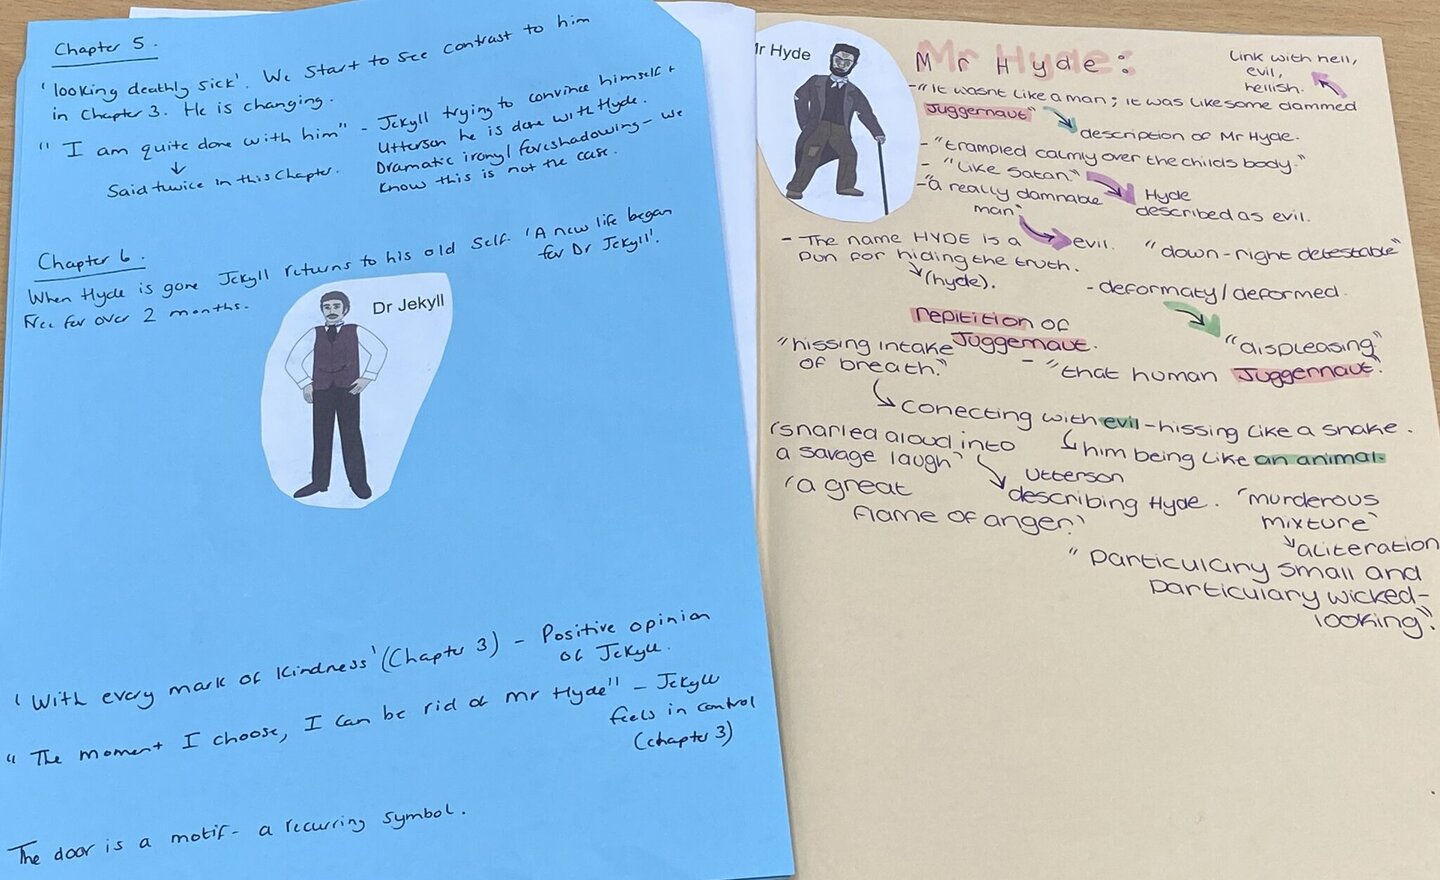 Chapter 5.
'looking deathly sick'. We start to see contrast to him
in Chapter 3. He is changing.
"I am quite done with him" - Jekyll trying to convince himself +
Utterson he is done with Hyde.
Dramatic irony/foreshadowing - we
know this is not the case.
Said twice in this Chapter.
Chapter 6.
When Hyde is gone Jekyll returns to his old self. 'A new life began
for Dr Jekyll'.
Free for over 2 months.
Dr Jekyll
'With every mark of kindness' (Chapter 3) - Positive opinion
of Jekyll.
"The moment I choose, I can be rid of Mr Hyde" - Jekyll
feels in control
(chapter 3)
The door is a motif - a recurring symbol.
Mr Hyde
Mr Hyde:
Link with hell,
evil,
hellish.
-"It wasnt like a man; it was like some dammed
Juggernaut"
description of Mr Hyde.
-"trampled calmly over the childs body."
- "Like Satan."
Hyde
described as evil.
-"a really damnable
man"
evil.
"down-right detestable"
- The name HYDE is a
pun for hiding the truth.
(hyde).
-deformaty/deformed.
"displeasing"
repitition of
Juggernaut.
- "that human Juggernaut".
"hissing intake
of breath."
Conecting with evil - hissing like a snake.
him being like an animal.
'snarled aloud into
a savage laugh"
Utterson
describing Hyde.
'a great
flame of anger.'
'murderous
mixture'
aliteration
"Particulary small and
particulary wicked-
looking".